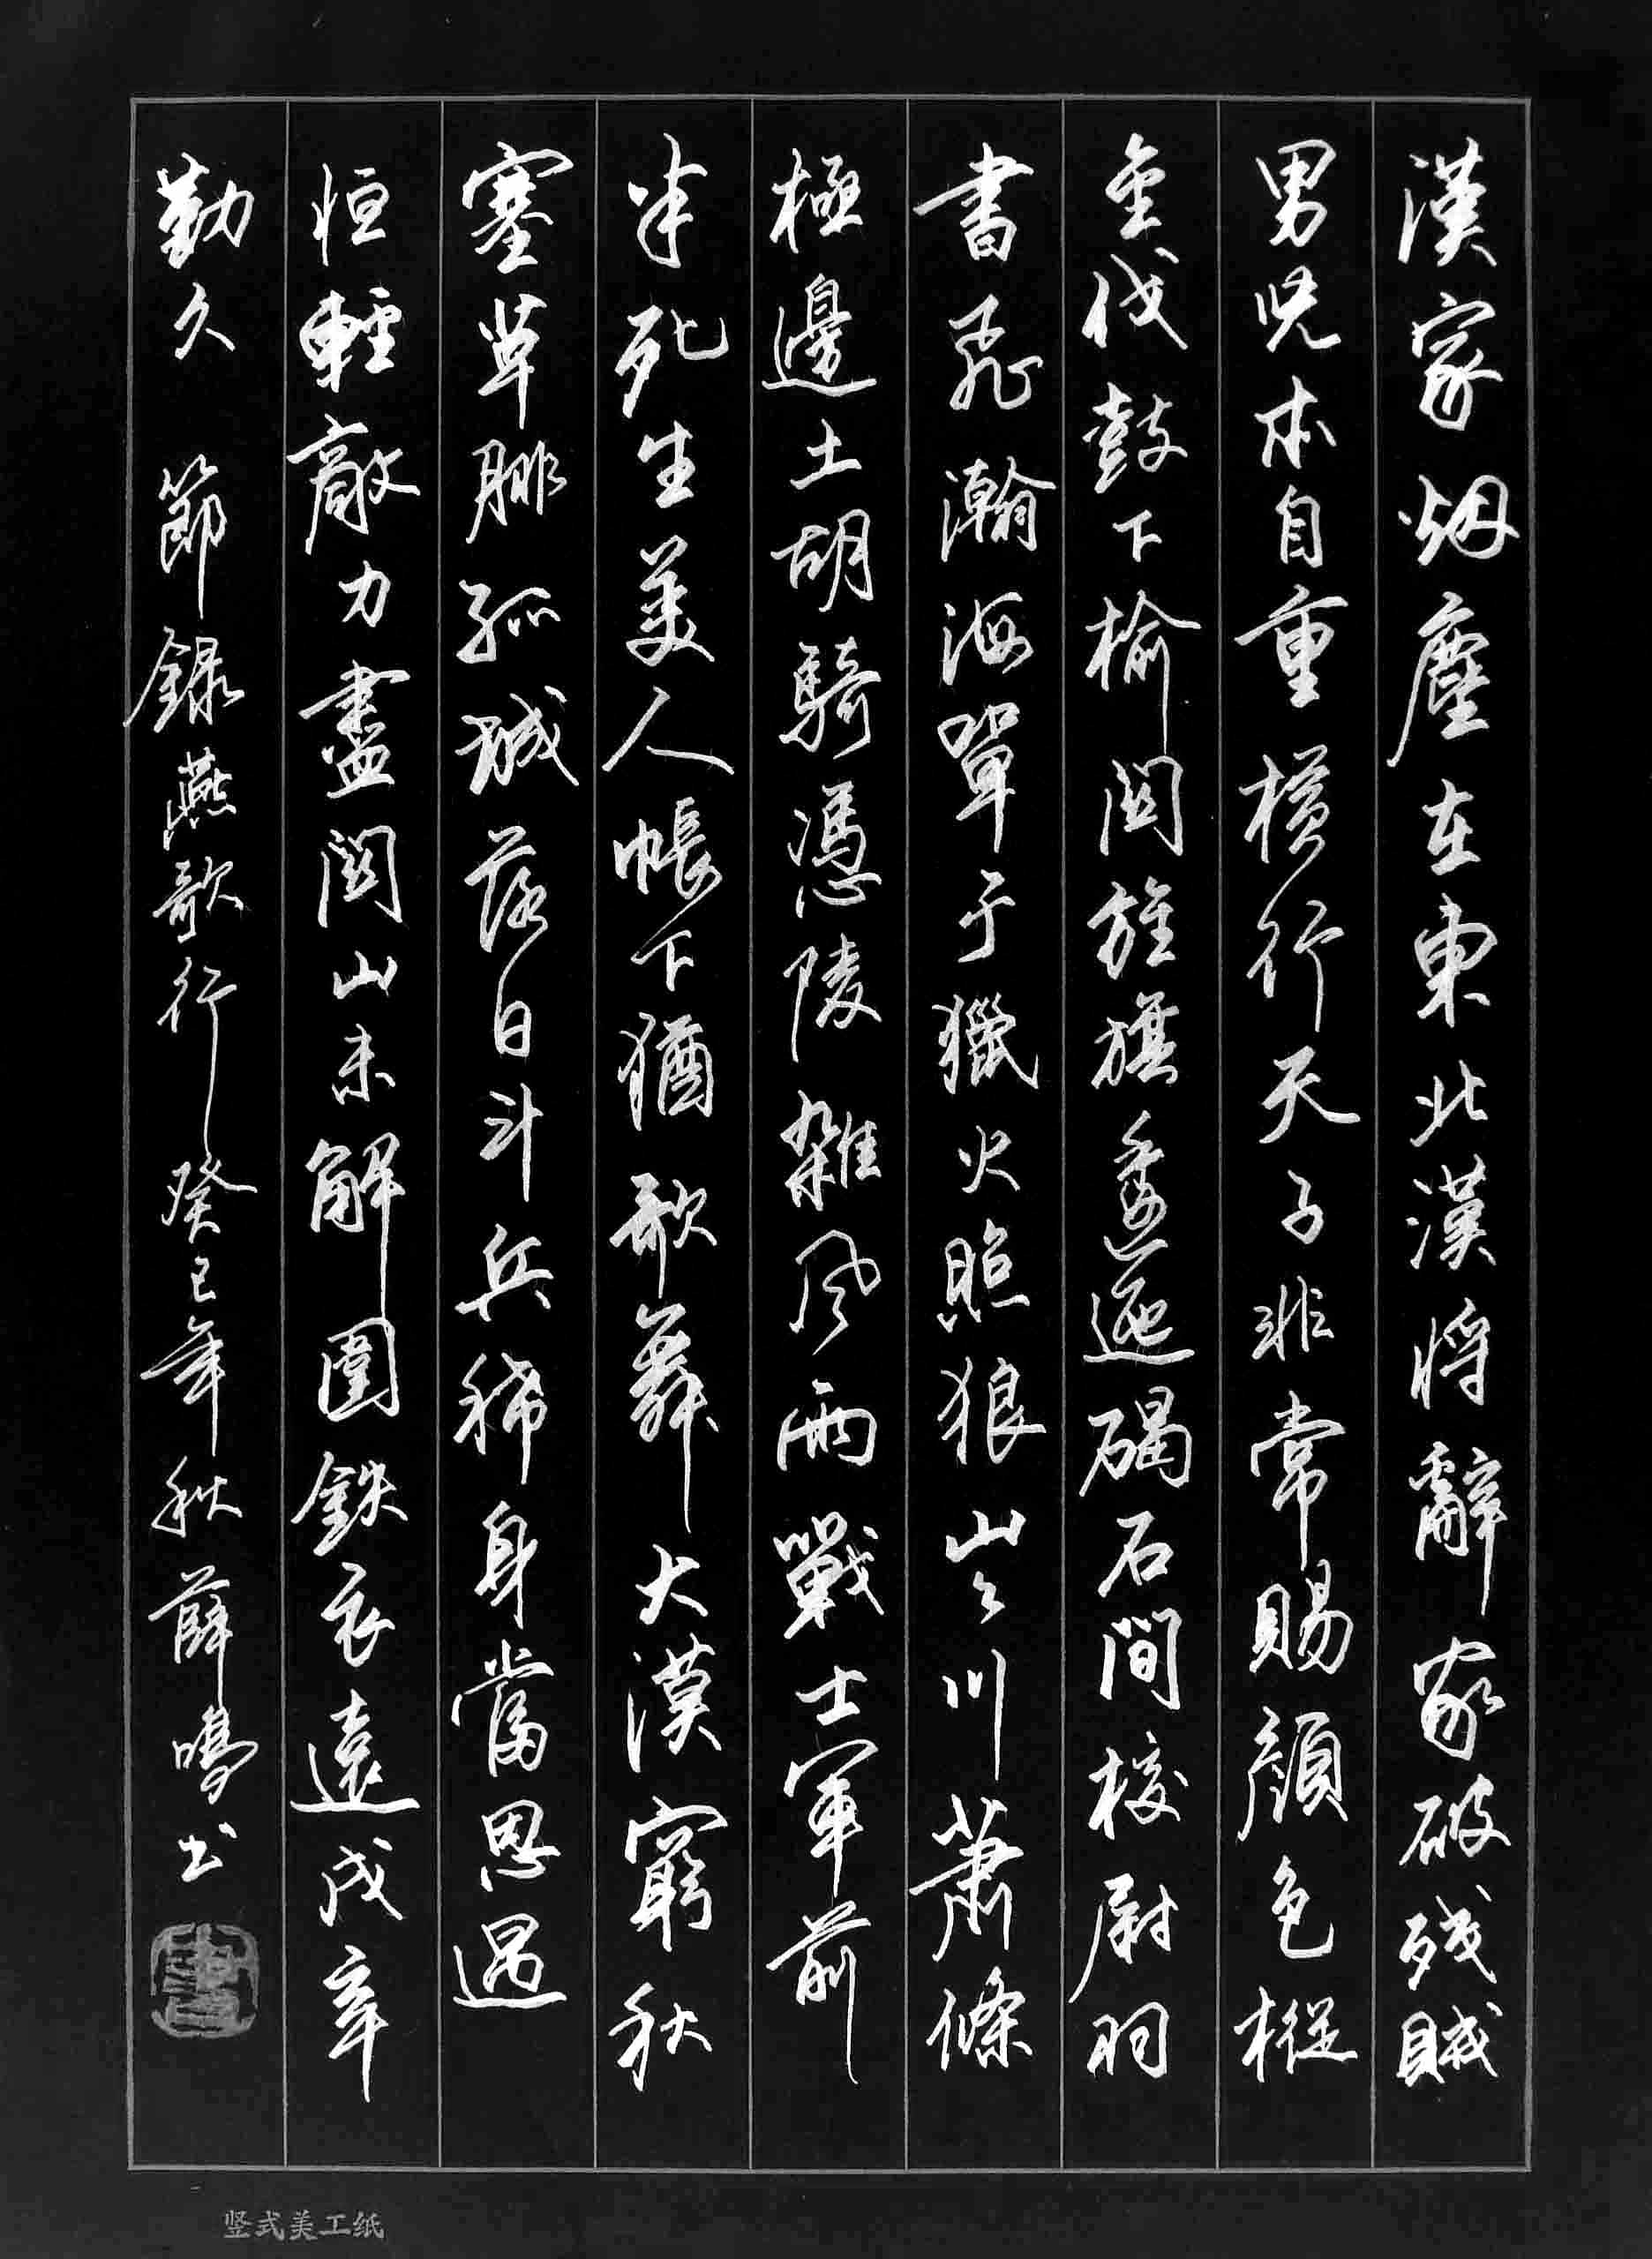 漢家烟塵在東北漢將辭家破殘賊
男兒本自重橫行天子非常賜顏色樅
金伐鼓下榆関旌旗逶迤碣石間校尉羽
書飛瀚海單于獵火照狼山々川蕭條
極邊土胡騎憑陵雜風雨戰士軍前
半死生美人帳下猶歌舞大漠窮秋
塞草腓孤城落日斗兵稀身當恩遇
恒輕敵力盡関山未解圍鉄衣遠戍辛
勤久 節錄燕歌行 癸巳年秋薛鳴书
竖式美工纸